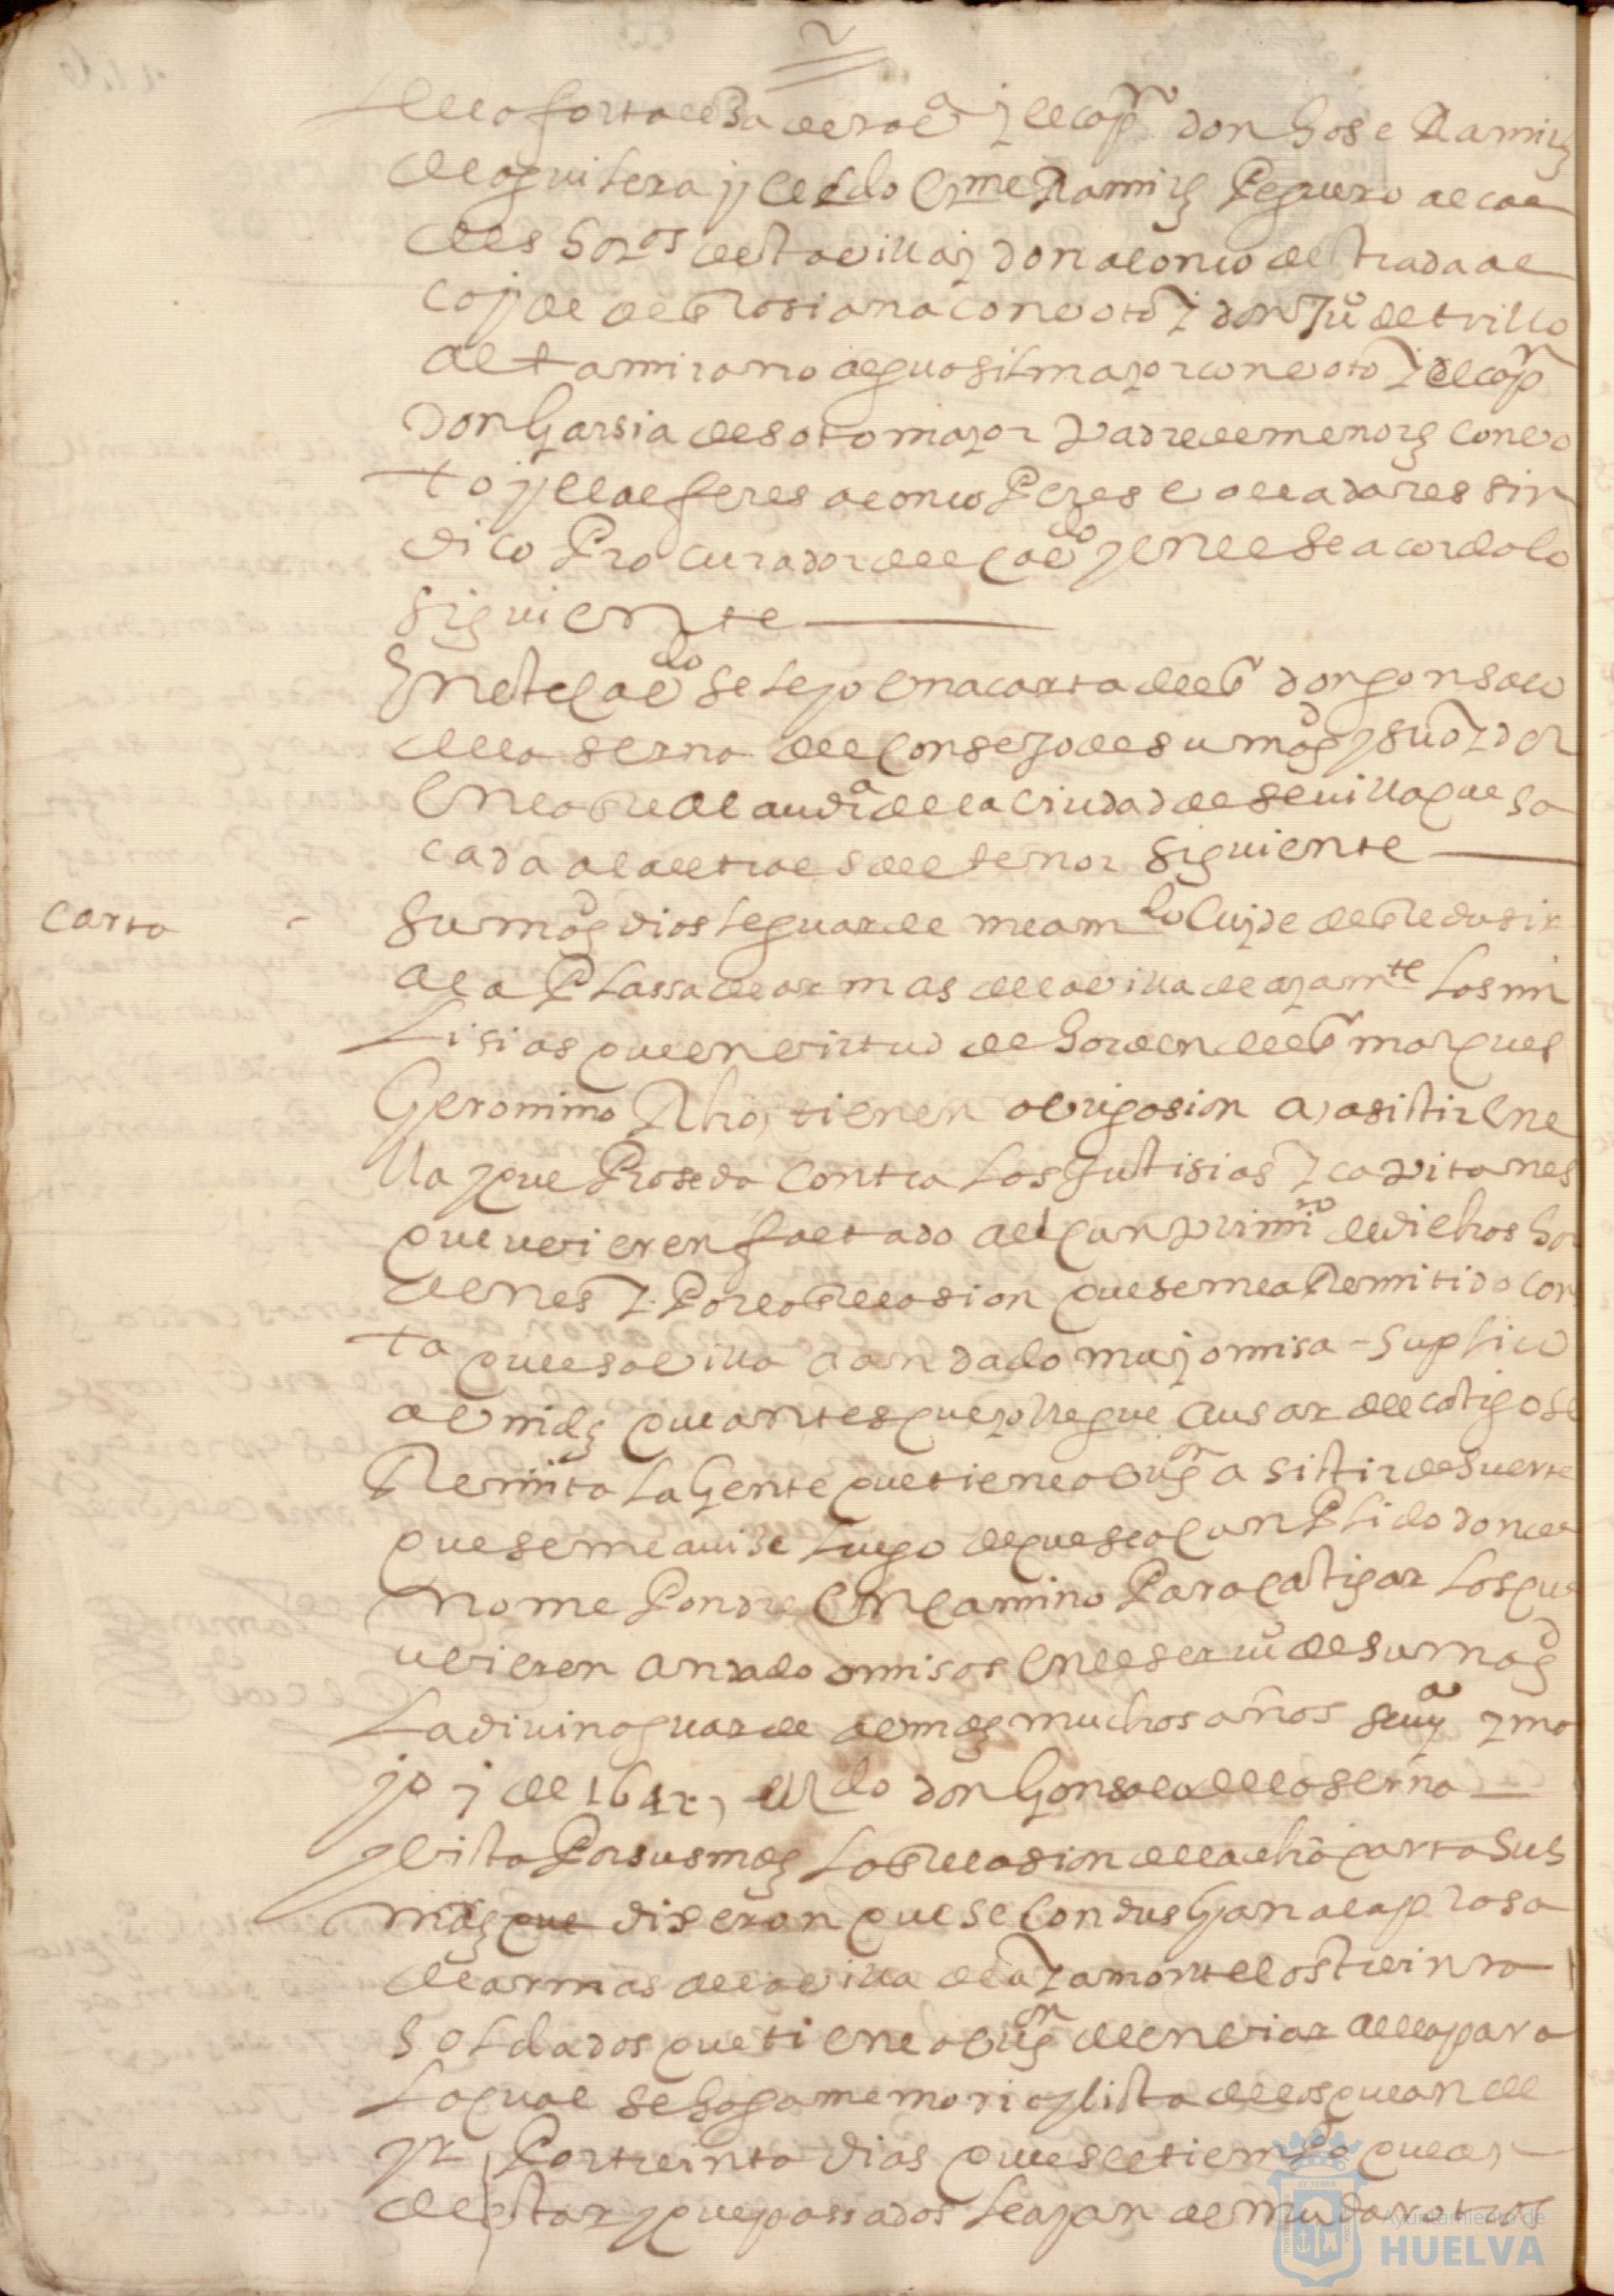 de la fortaleza della y el capn don Jose Ramirz
de aguilera y el Ldo Cme Ramirz Peguero alcal
des hor os desta villa y don alonso destrada al
cayde de Rosiana con voto y don Ju de trillo
altamirano alguasil mayor con voto y el capn
don Garsia de sotomayor Padre de menors con vo
to y el alferes alonso Peres valladares sin
dico Procurador del cavdo y en el se acordo lo
siguiente
En este cavdo se leyo una carta del sr don gonsalo
de la serna del Consejo de su magd y su oydor
en la Real audia de la ciudad de sevilla que sa
cada a la letra es del tenor siguiente
Carta
Su magd dios le guarde me a mdo cuyde de Redusir
a la Plassa de armas de la villa de ayamte Las mi
Lisias que en virtud de horden del sr marques
Geronimo Rho, tienen obligasion a asistir en e
lla y que Proseda contra Las Justisias y capitanes
que ubieren faltado al cunplimito de dichas hor
denes y Por la Relasion que se me a Remitido cons
ta que esa villa a andado muy omisa - suplico
a V mds que antes que yo llegue a usar del castigo se
Remita La Gente que tiene obligon a asistir de suerte
que se me avise Luego de que sea cunPlido donde
no me Pondre en camino Para castigar Los que
ubieren andado omisos en el servio de su magd
La divina guarde a V mds muchos años seva y ma
yo 7 de 1642, el Ldo don Gonsalo de la serna
y vista Por sus mds La Relasion de la dha carta sus
mds que dixeron que se condusgan a la plasa
de armas de la villa de ayamonte los treinta
soldados que tiene obligon de enviar della para
Lo qual se haga memoria y lista de los que an de
yr Por treinta dias que es el tiempo que an
de estar y que pasados se ayan de mudar otros
Ayuntamiento de
HUELVA